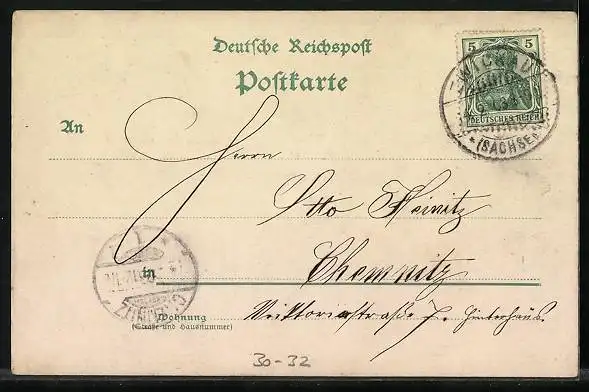 Deutsche Reichspost
Postkarte
5 5
DEUTSCHES REICH
ZWICKAU
* (SACHSEN)
An
Herrn
Otto Heinitz
in Chemnitz
Viktoriastraße 7. Hinterhaus.
Wohnung
(Straße und Hausnummer)
CHEMNITZ
30-32